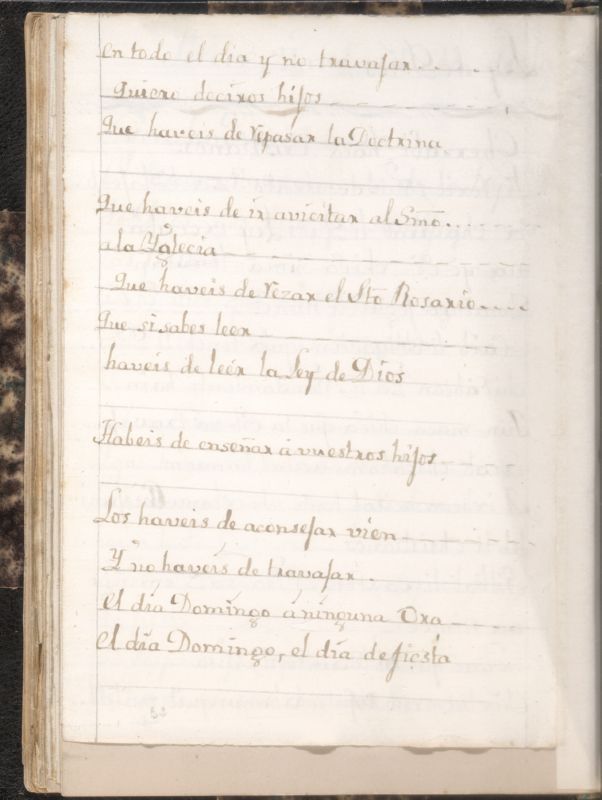 en todo el dia y no travajar....
Quiero deciros hijos
Que haveis de repasar la Doctrina
Que haveis de ir avicitar al Smõ...
ala Yglecia
Que haveis de rezar el Sto Rosario....
Que si sabes leer
haveis de leér la Ley de Dios
Habeis de enseñar á vuestros hijos
Los haveis de aconsejar vien
Y no haveis de travajar.
el dia Domingo á ninguna Ora
el dia Domingo, el dia de fiesta